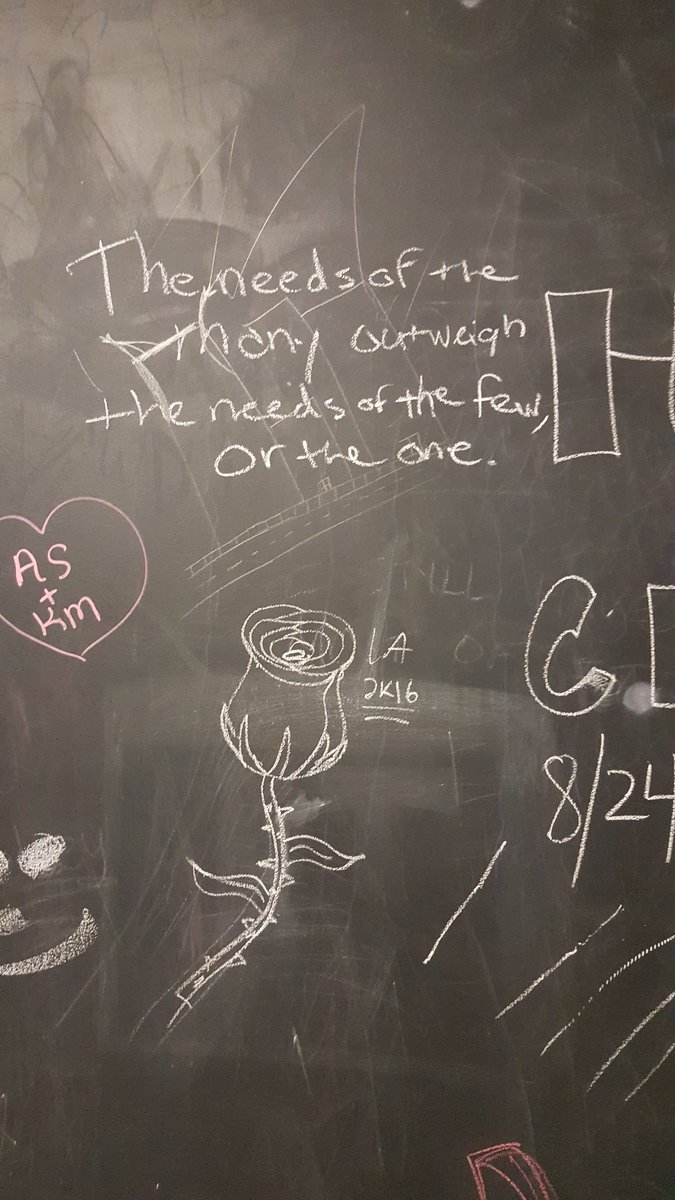 The needs of the
many outweigh
the needs of the few,
or the one.
AS
+
KM
LA
2K16
8/24